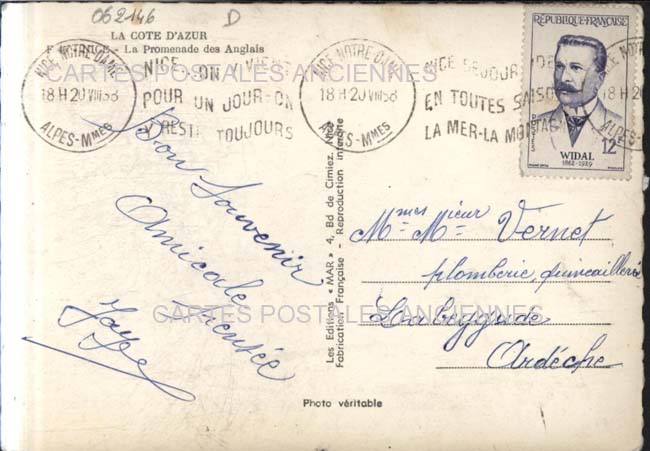 062146
D
LA COTE D'AZUR
NICE - La Promenade des Anglais
NICE NOTRE-DAME
18H 20 VIII 58
ALPES-MMES
NICE ON Y VIENT
POUR UN JOUR-ON
Y RESTE TOUJOURS
NICE NOTRE-DAME
18H 20 VIII 58
ALPES-MMES
NICE SEJOUR IDE
EN TOUTES SAISO
LA MER-LA MONTAG
18H 20
RÉPUBLIQUE-FRANÇAISE
POSTES
12F
WIDAL
1862-1929
CARTES POSTALES ANCIENNES
Bon Souvenir
Amicale
Pensée
Les Editions "MAR" 4, Bd de Cimiez, Nice
Fabrication Française - Reproduction interdite
Mmes Mieur Vernet
plomberie, quincaillerie
Labeygude
Ardèche
CARTES POSTALES ANCIENNES
Photo véritable